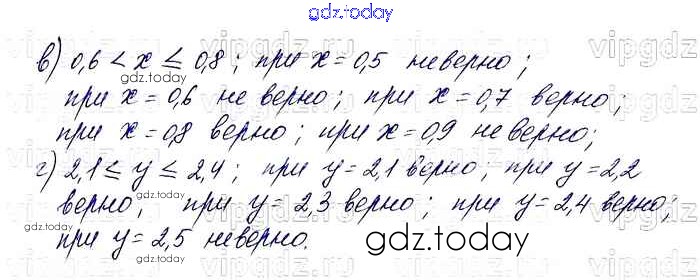 gdz.today
в) 0,6 < x ≤ 0,8; при x = 0,5 неверно;
gdz.today
при x = 0,6 неверно; при x = 0,7 верно;
при x = 0,8 верно; при x = 0,9 неверно;
г) 2,1 ≤ y ≤ 2,4; при y = 2,1 верно; при y = 2,2
gdz.today
верно; при y = 2,3 верно; при y = 2,4 верно;
при y = 2,5 неверно.
gdz.today